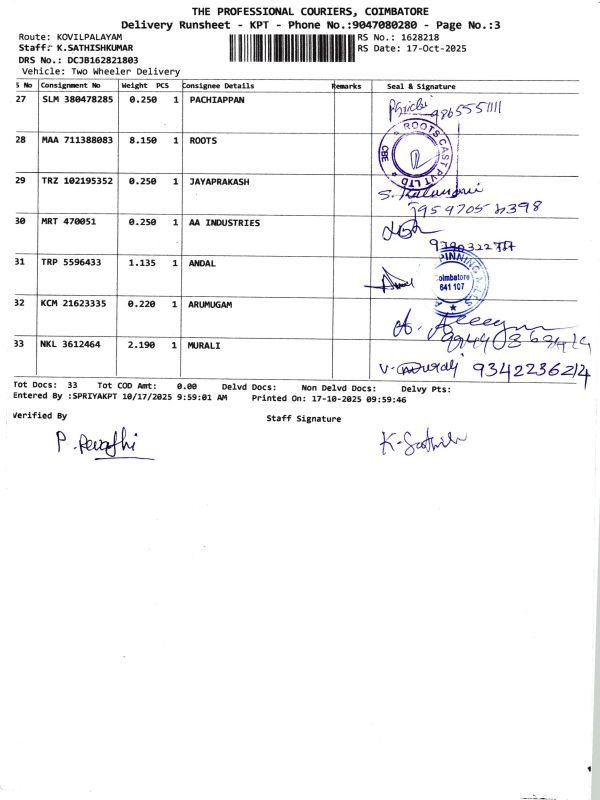 THE PROFESSIONAL COURIERS, COIMBATORE
Delivery Runsheet - KPT - Phone No.:9047080280 - Page No.:3
Route: KOVILPALAYAM RS No.: 1628218
Staff: K.SATHISHKUMAR RS Date: 17-Oct-2025
DRS No.: DCJB162821803
Vehicle: Two Wheeler Delivery
S No Consignment No Weight PCS Consignee Details Remarks Seal & Signature
27 SLM 380478285 0.250 1 PACHIAPPAN 9865551111
28 MAA 711388083 8.150 1 ROOTS ROOTS CAST PVT LTD CBE
29 TRZ 102195352 0.250 1 JAYAPRAKASH
30 MRT 470051 0.250 1 AA INDUSTRIES
31 TRP 5596433 1.135 1 ANDAL PINNING MILLS Coimbatore 641 107
32 KCM 21623335 0.220 1 ARUMUGAM A.
33 NKL 3612464 2.190 1 MURALI V. Murali 9342236214
Tot Docs: 33 Tot COD Amt: 0.00 Delvd Docs: Non Delvd Docs: Delvy Pts:
Entered By :SPRIYAKPT 10/17/2025 9:59:01 AM Printed On: 17-10-2025 09:59:46
Verified By Staff Signature
P. Revathi K-Sathish